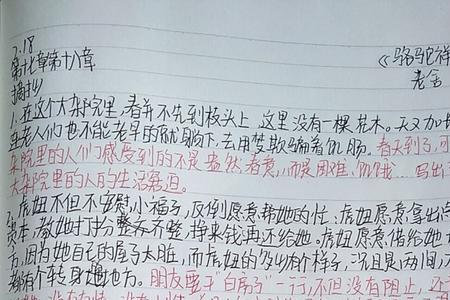 7.18
第十七章第十八章 《骆驼祥
摘抄 老舍
1、在这个大杂院里,春并不先到枝头上,这里没有一棵花木。天又加长
至老人们也不能老早的就躺下,去用梦欺骗着饥肠。春天到了,可
杂院里的人们感受到的不是盎然春意,而是困难、饥饿 写出了
大杂院里的人的生活窘迫。
2、虎妞不但不安慰小福子,反倒愿意帮她的忙:虎妞愿意拿出点
资本,教她打扮整齐,挣来钱再还给她。虎妞愿意借给她
方,因为她自己的屋子太脏,而虎妞的多少有个样子,况且是两间,
都有个转身的地方。朋友要干"白房子"一行,不但没有阻止,还